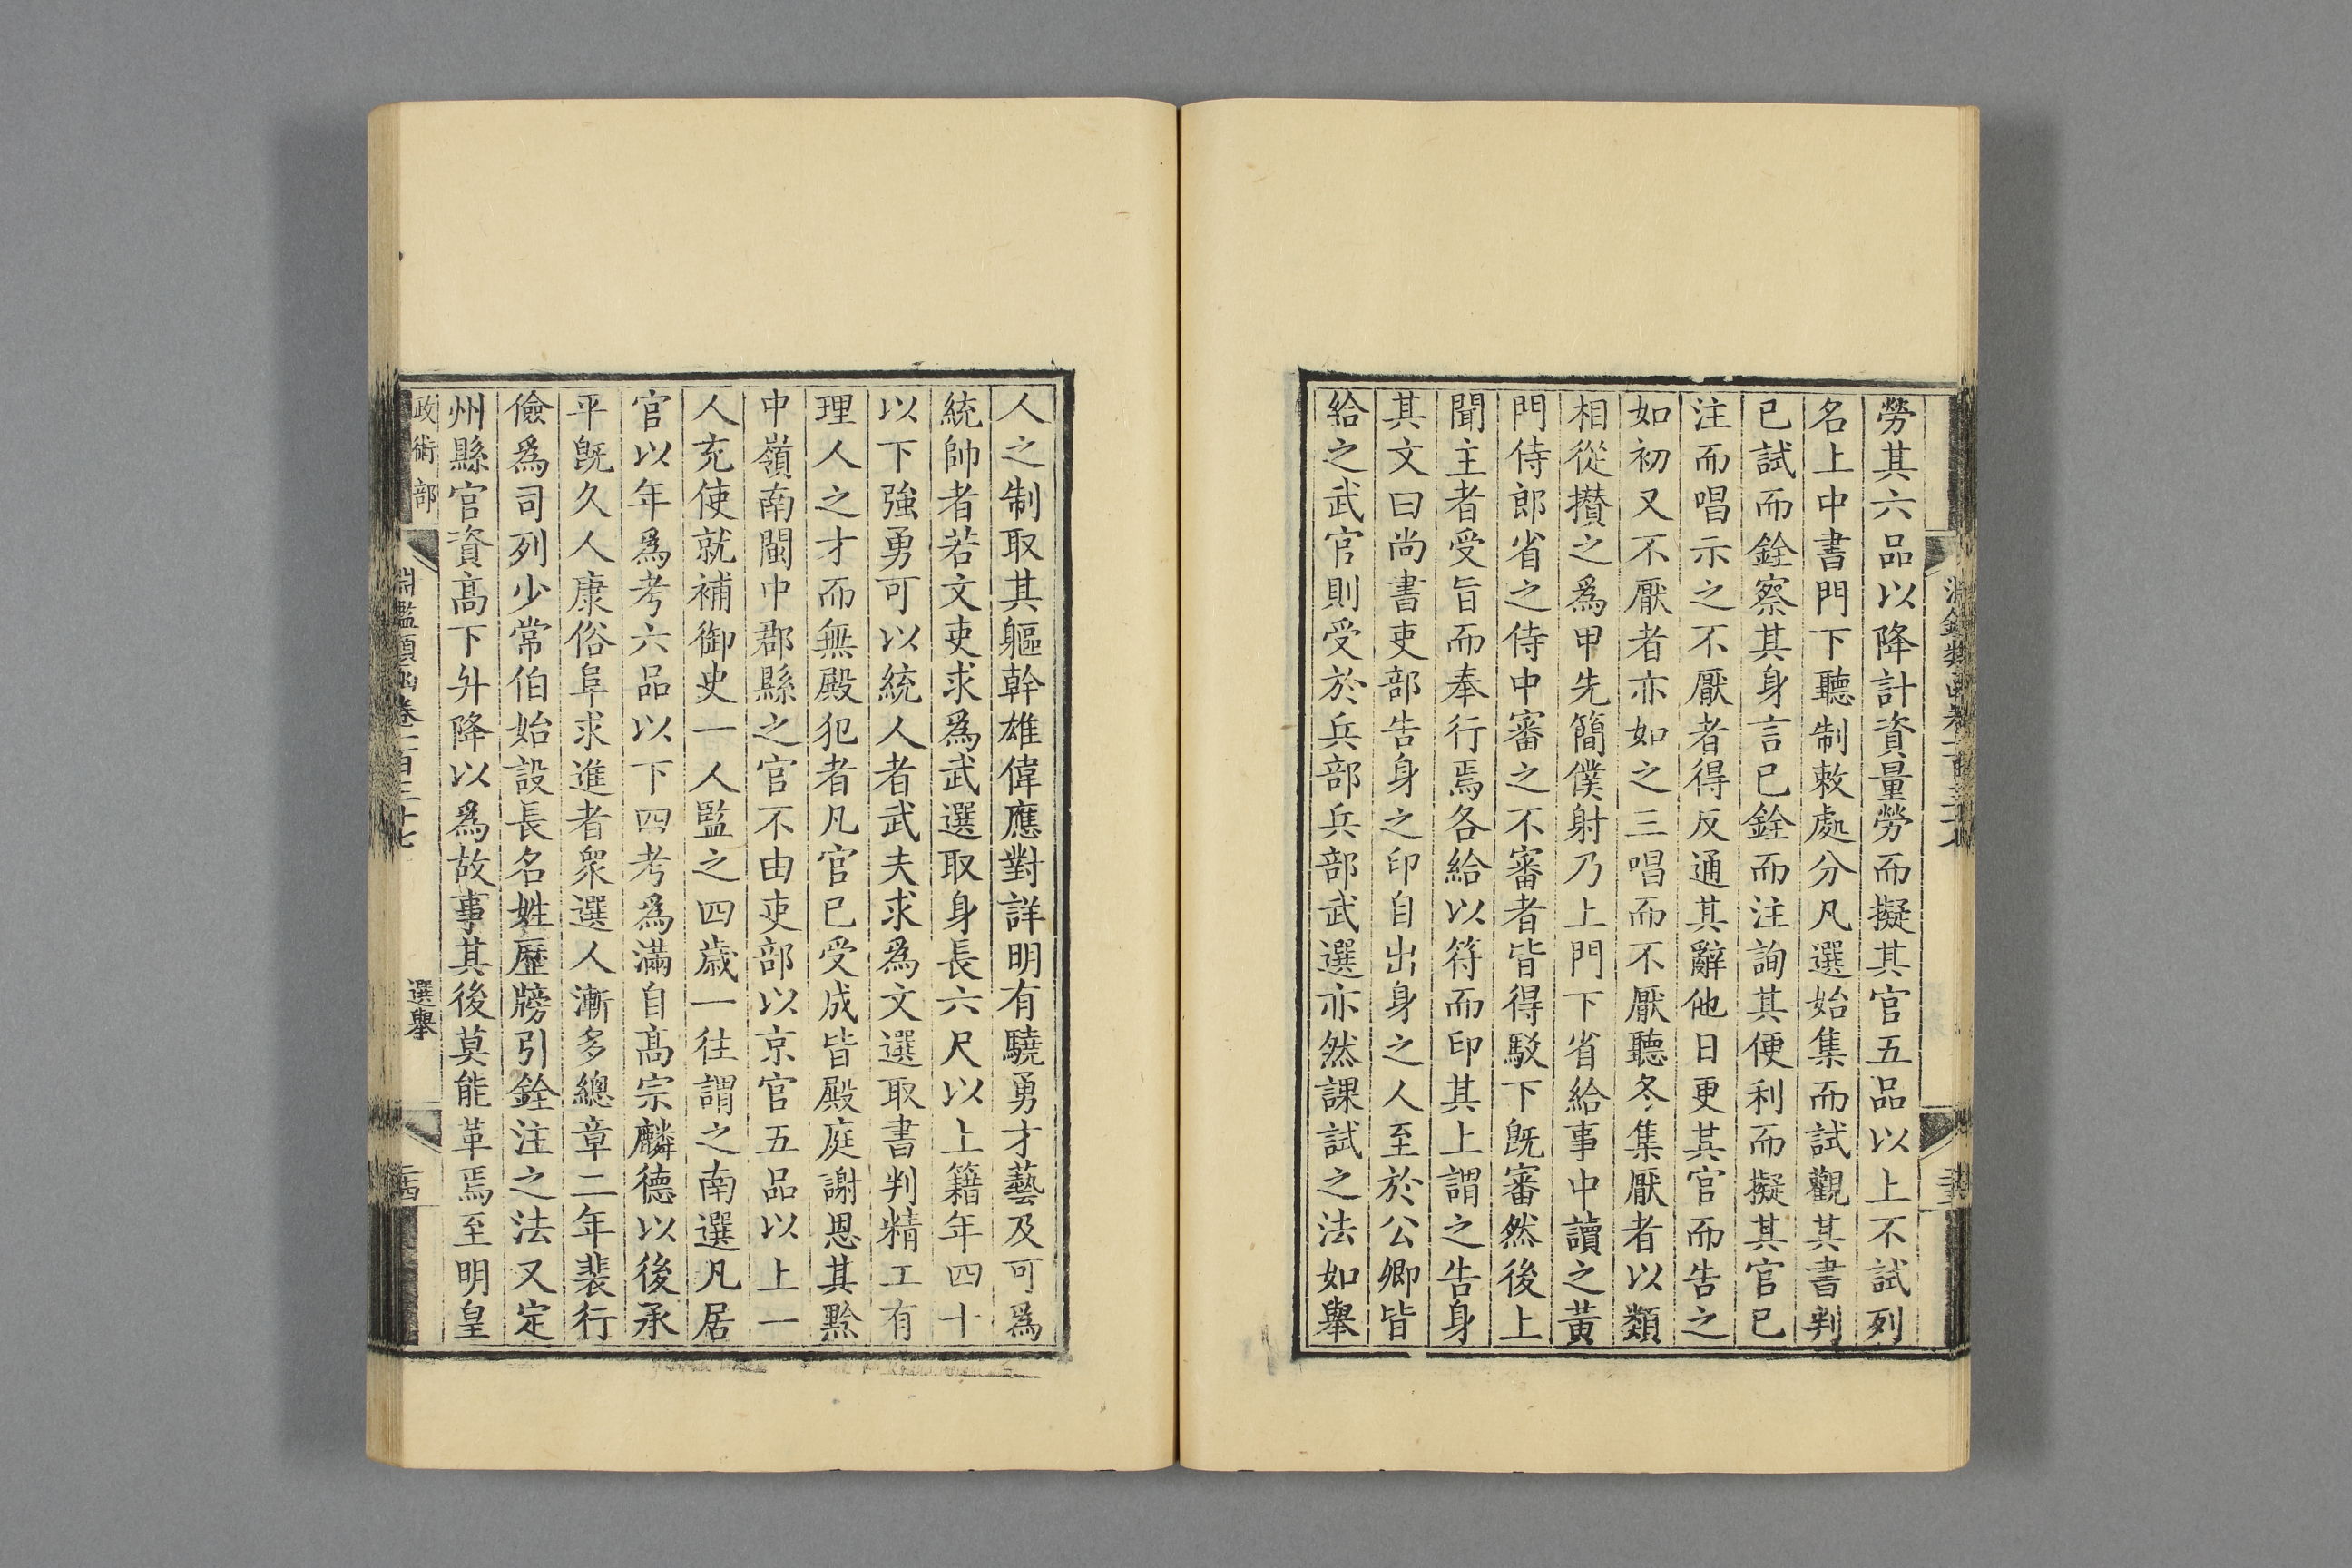 勞其六品以降計資量勞而擬其官五品以上不試列
名上中書門下聽制敕處分凡選始集而試觀其書判
已試而銓察其身言已銓而注詢其便利而擬其官已
注而唱示之不厭者得反通其辭他日更其官而告之
如初又不厭者亦如之三唱而不厭聽冬集厭者以類
相從攅之為甲先簡僕射乃上門下省給事中讀之黃
門侍郎省之侍中審之不審者皆得駁下旣審然後上
聞主者受旨而奉行焉各給以符而印其上謂之告身
其文曰尚書吏部告身之印自出身之人至於公卿皆
給之武官則受於兵部兵部武選亦然課試之法如舉
人之制取其軀幹雄偉應對詳明有驍勇才藝及可為
統帥者若文吏求為武選取身長六尺以上籍年四十
以下強勇可以統人者武夫求為文選取書判精工有
理人之才而無殿犯者凡官已受成皆殿庭謝恩其黔
中嶺南閩中郡縣之官不由吏部以京官五品以上一
人充使就補御史一人監之四歲一往謂之南選凡居
官以年為考六品以下四考為滿自高宗麟德以後承
平旣久人康俗阜求進者衆選人漸多總章二年裴行
儉為司列少常伯始設長名姓歷牓引銓注之法又定
州縣官資高下升降以為故事其後莫能革焉至明皇
政術部
淵鑑類函卷一百三十七
選舉